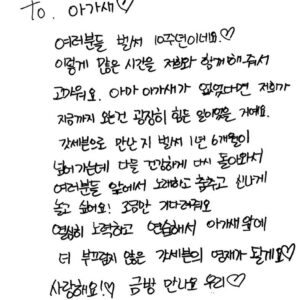 To. 아가새♡
여러분들 벌써 10주년이네요.♡
이렇게 많은 시간을 저희와 함께해주셔
고마워요. 아마 아가새가 없었다면 저희가
지금까지 와는건 굉장히 힘든 일이었을 거예요.
갓세븐으로 만난 지 벌써 1년 6개월이
넘어가는데 다들 건강하게 다시 돌아와서
여러분들 앞에서 노래하고 춤추고 신나게
놀고 싶어요! 조금만 기다려줘요
열심히 노력하고 연습해서 아가새들에
더 부끄럽지 않은 갓세븐의 영재가 될게요♡
사랑해요!♡ 금방 만나요 우리♡